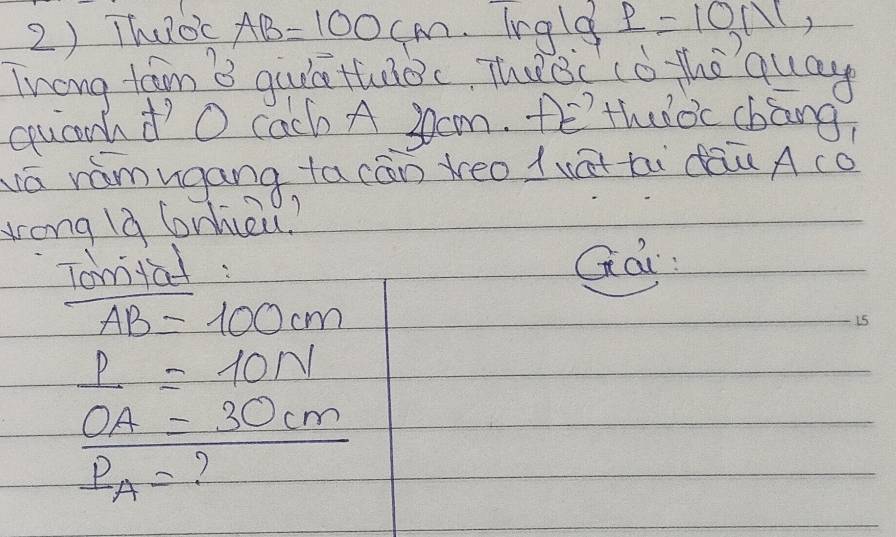 2) Thước AB = 100cm. Trglg P = 10N,
Trọng tâm ở giữa thước. Thước có thể quay
quanh đ' O cách A 30cm. Để thước thăng,
và nằm ngang ta cần treo 1 vật tại đầu A có
trọng lg bnhiêu?
Tómtắt:
Giải:
AB = 100cm
P = 10N
OA = 30cm
P_A = ?
15